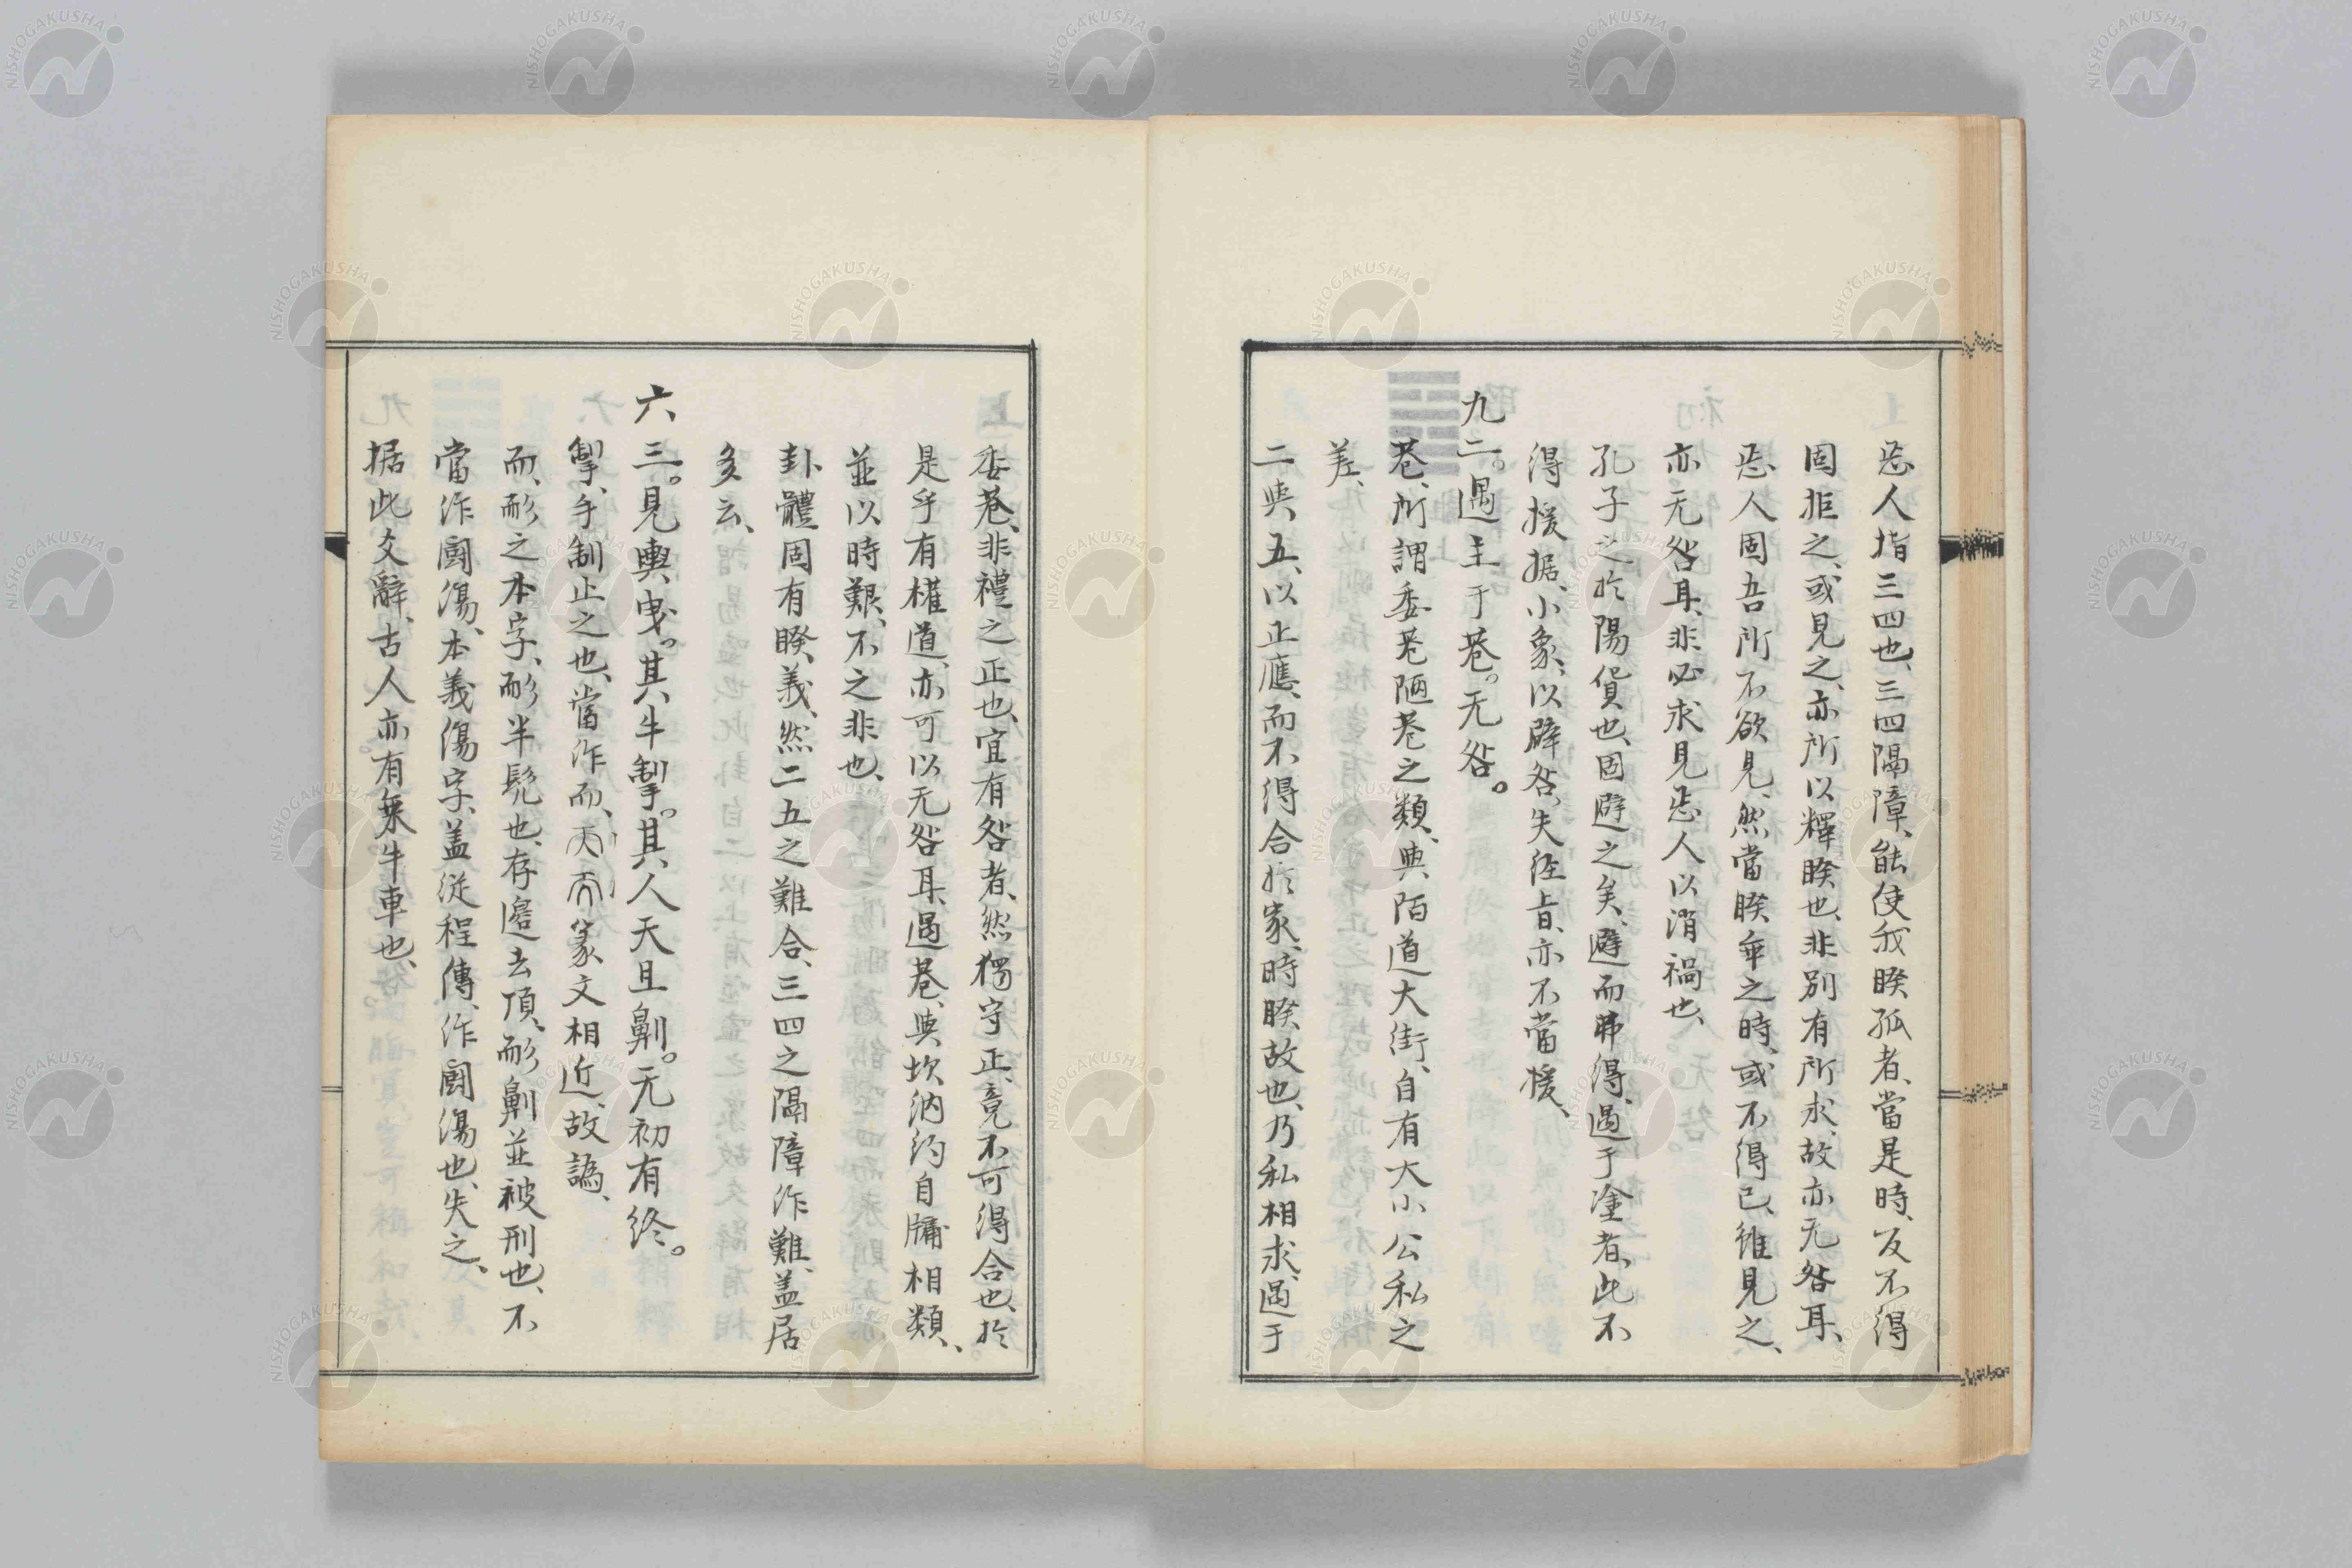 惡人指三四也、三四隔障、能使我睽孤者、當是時、反不得
固拒之、或見之、亦所以釋睽也、非別有所求、故亦无咎耳、
惡人固吾所不欲見、然當睽乖之時、或不得已、雖見之、
亦无咎耳、非必求見惡人以消禍也、
孔子之於陽貨也、固避之矣、避而弗得、遇于塗者、此不
得援据、小象、以辟咎、失經旨、亦不當援、
九二。遇主于巷。无咎。
巷、所謂委巷陋巷之類、與陌道大街、自有大小公私之
差、
二與五、以正應、而不得合於家、時睽故也、乃私相求、遇于
委巷、非禮之正也、宜有咎者、然獨守正、竟不可得合也、於
是乎有權道、亦可以无咎耳、遇巷、與坎納約自牖相類、
並以時艱、不之非也、
卦體固有睽義、然二五之難合、三四之隔障作難、盖居
多云、
六三。見輿曳。其牛掣。其人天且劓。无初有終。
掣、手制止之也、當作而、篆文相近、故譌、
而、耏之本字、耏半髡也、存邊去頂、耏劓並被刑也、不
當作閿傷、本義傷字、盖從程傳、作閿傷也、失之、
据此爻辭、古人亦有乗牛車也、